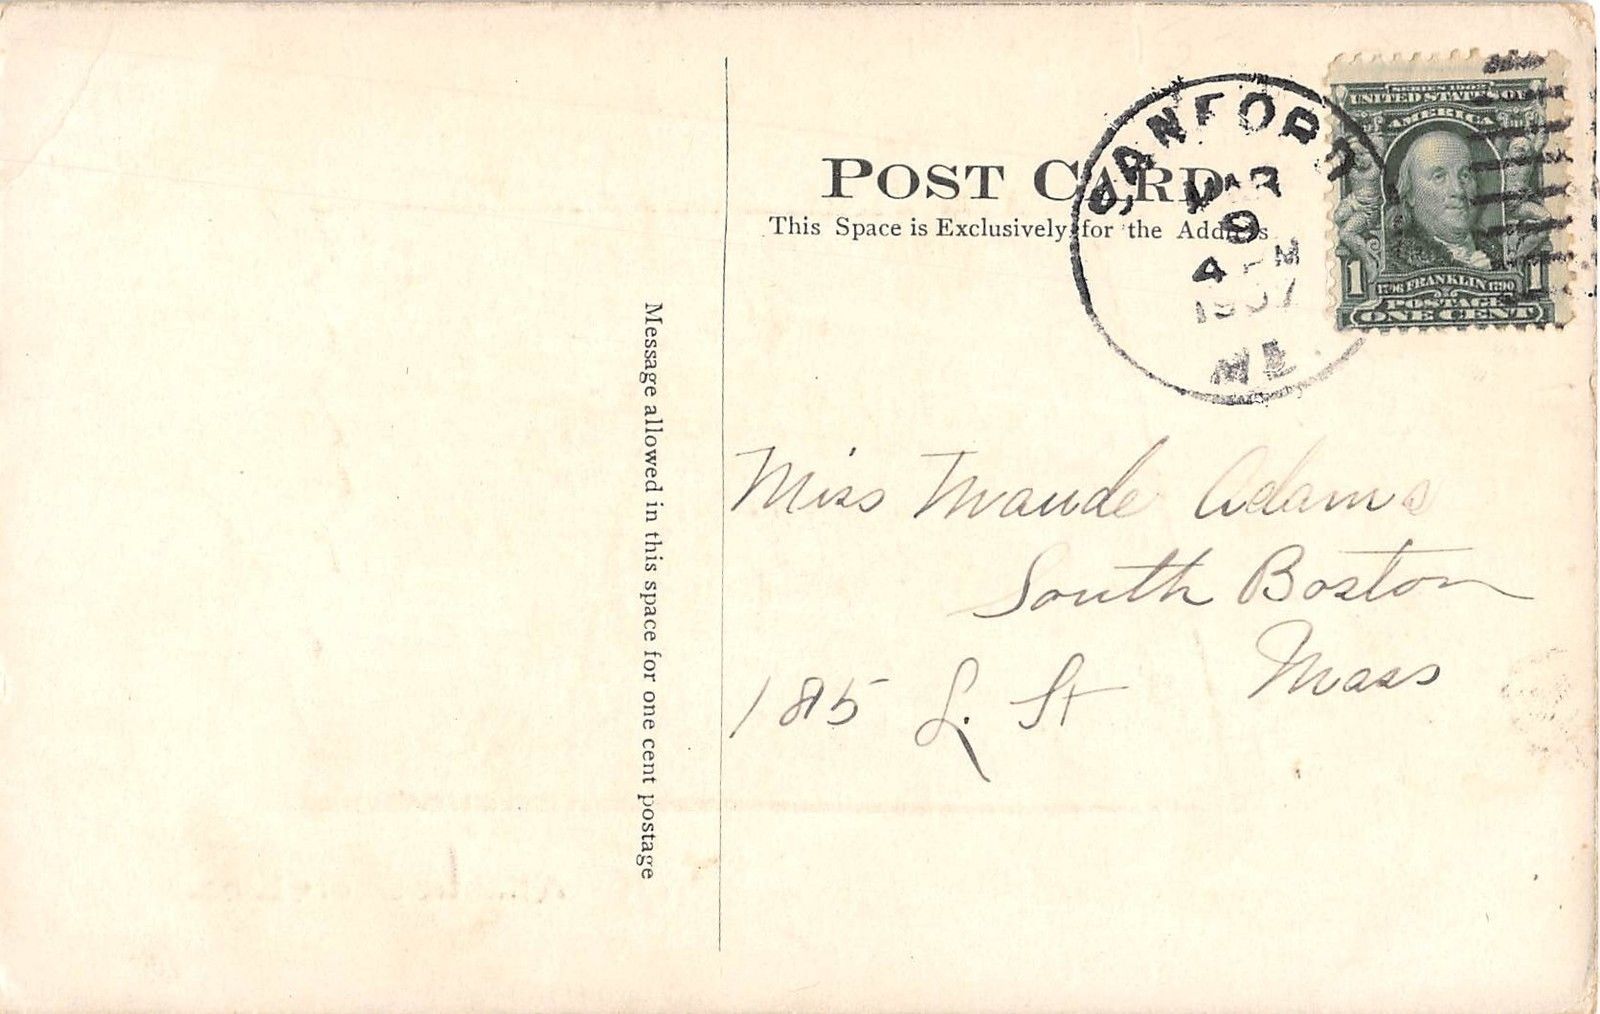 POST CARD
This Space is Exclusively for the Address
Message allowed in this space for one cent postage
SANFORD
MAR
9
4
1907
ME.
SERIES 1902
UNITED STATES OF
AMERICA
1 1
1706 FRANKLIN 1790
POSTAGE
ONE CENT
Miss Maude Adams
South Boston
Mass
185 L. St